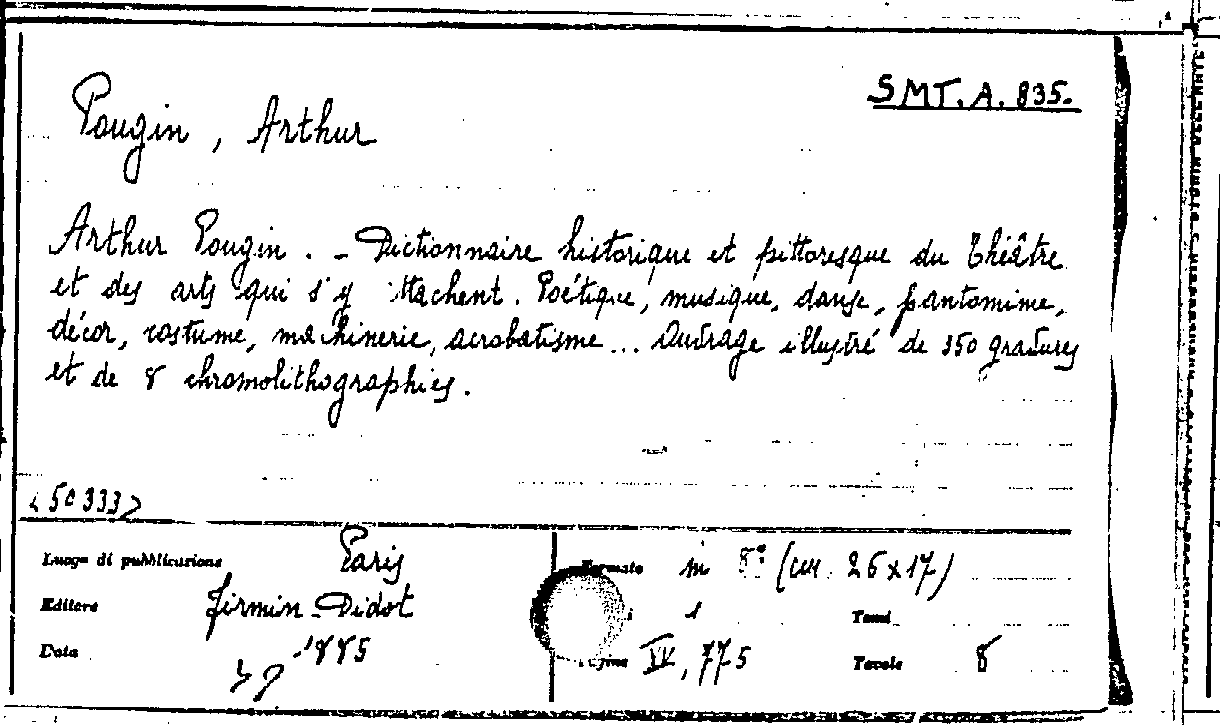 SMT. A. 835.
Pougin, Arthur
Arthur Pougin. - Dictionnaire historique et pittoresque du théâtre
et des arts qui s'y attachent. Poétique, musique, danse, pantomime,
décor, costume, machinerie, acrobatisme... Ouvrage illustré de 350 gravures
et de 8 chromolithographies.
<50333>
Luogo di pubblicazione Paris Formato in 8° (cm. 26x17)
Editore Firmin-Didot 1 Tomi
Data 1885 Pagine IV, 775 Tavole 8